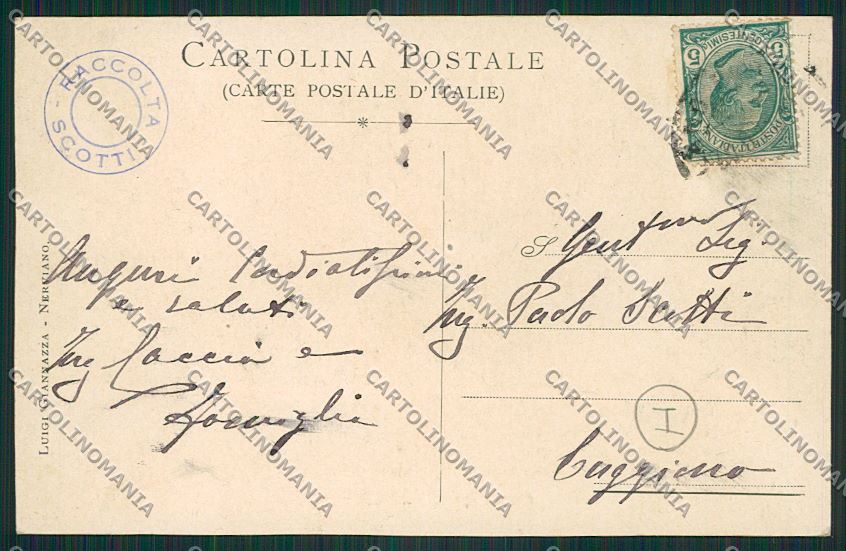 CARTOLINA POSTALE
(CARTE POSTALE D'ITALIE)
RACCOLTA SCOTTI
5 CENTESIMI 5
POSTE ITALIANE
LUIGI GIANNAZZA - NERVIANO
Auguri Cordialissimi
e saluti
Ing Caccia e
Famiglia
S Gent mo Sig.
Ing. Paolo Scotti
I
Cuggiono
CARTOLINOMANIA